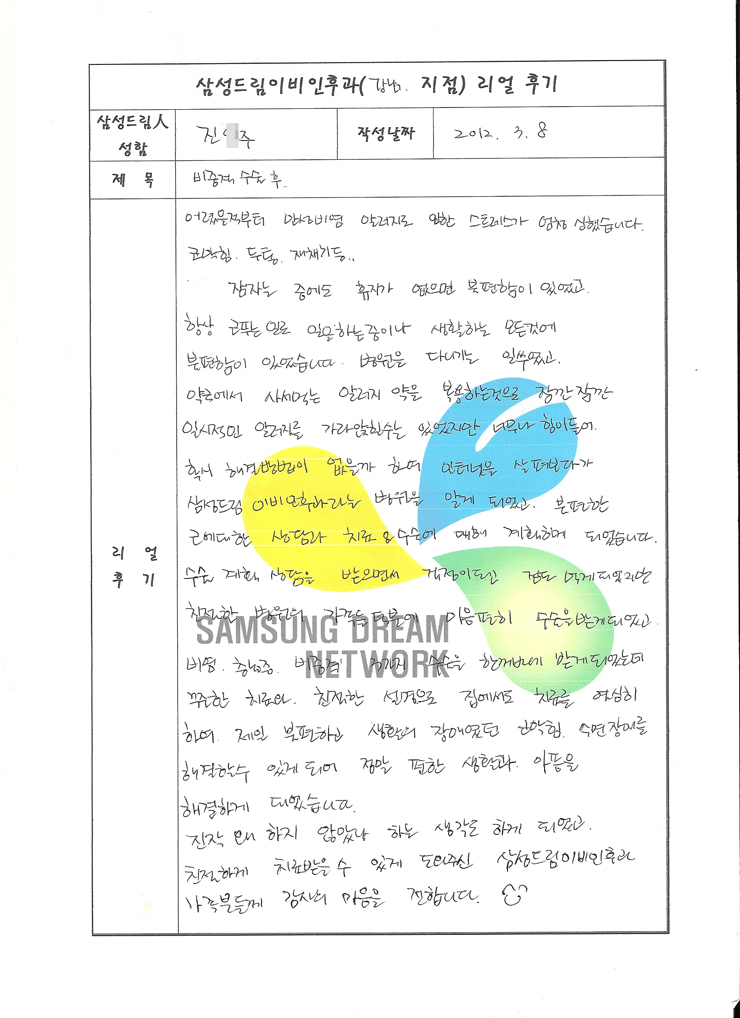 삼성드림이비인후과(강남. 지점) 리얼 후기
삼성드림人
성함
진 주
작성날짜
2012. 3. 8
제 목
비중격 수술 후..
리 얼
후 기
어렸을적부터 만성비염 알러지로 인한 스트레스가 엄청 심했습니다.
코막힘. 두통. 재채기등..
잠자는 중에도 휴지가 없으면 불편함이 있었고.
항상 코푸는 일로 일을하는중이나 생활하는 모든것에
불편함이 있었습니다. 병원을 다니기는 일쑤였고.
약국에서 사서먹는 알러지 약을 복용하는것으로 잠깐 잠깐
일시적인 알러지를 가라앉힐수는 있었지만 너무나 힘이들어.
혹시 해결방법이 없을까 하여 인터넷을 살펴보다가
삼성드림 이비인후과라는 병원을 알게 되었고. 불편한
코에대한 상담과 치료&수술에 대해 계획하게 되었습니다.
수술 계획, 상담을 받으면서 걱정이되고 겁도 먹게되었지만
친절한 병원의 가족들덕분에 마음편히 수술을받게되었고.
비염. 축농증. 비중격 3가지 수술을 한꺼번에 받게되었는데
꾸준한 치료와. 친절한 설명으로 집에서도 치료를 열심히
하여. 제일 불편하고 생활의 장애였던 코막힘. 수면장애를
해결할수 있게되어 정말 편한 생활과. 아픔을
해결하게 되었습니다.
진작 왜 하지 않았나 하는 생각도 하게 되었고.
친절하게 치료받을수 있게 도와주신 삼성드림이비인후과
가족분들께 감사의 마음을 전합니다.
SAMSUNG DREAM
NETWORK